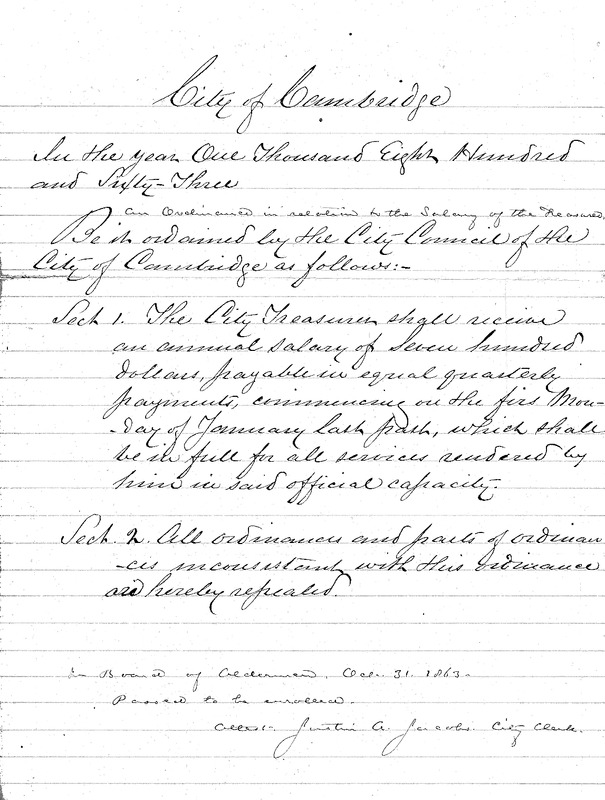 City of Cambridge
In the year One Thousand Eight Hundred
and Sixty-Three
An Ordinance in relation to the Salary of the Treasurer
Be it ordained by the City Council of the
City of Cambridge as follows:-
Sect 1. The City Treasurer shall receive
an annual salary of seven hundred
dollars, payable in equal quarterly
payments, commencing on the firs Mon-
-day of January last past, which shall
be in full for all services rendered by
him in said official capacity.
Sect. 2. All ordinances and parts of ordinan
-ces inconsistent with this ordinance
are hereby repealed.
In Board of Aldermen. Oct. 31. 1863.
Passed to be enrolled.
Attest. Justin A. Jacobs. City Clerk.